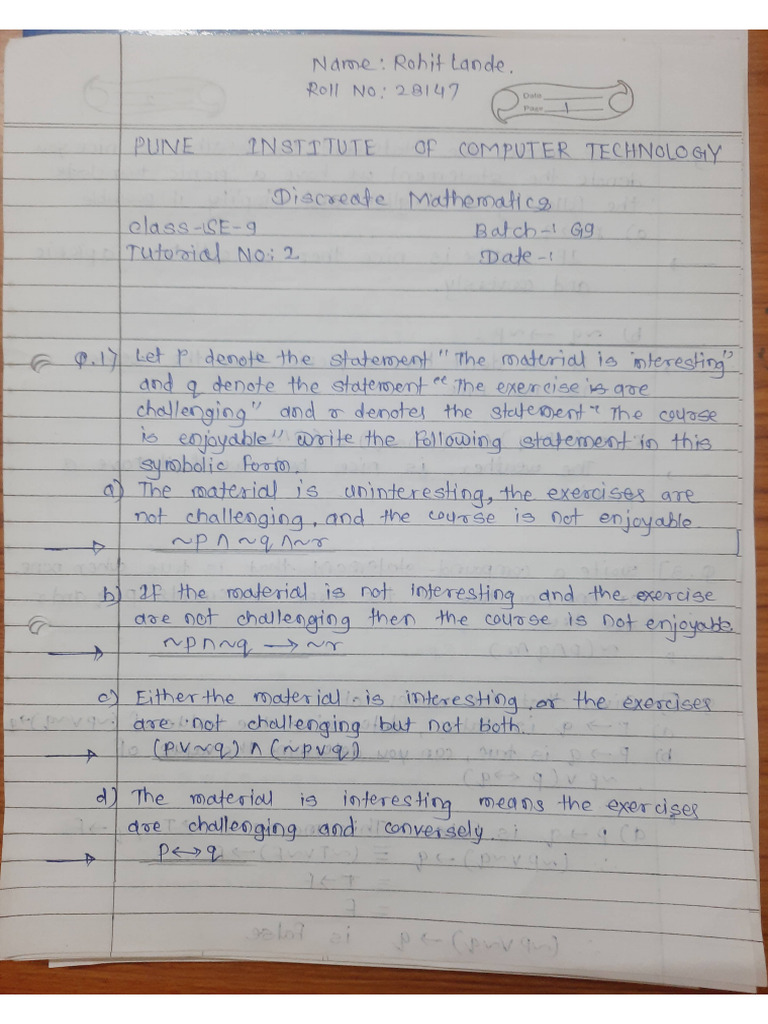 Name: Rohit Lande.
Roll No: 28147
Date
Page 1
PUNE INSTITUTE OF COMPUTER TECHNOLOGY
Discreate Mathematics
class-:SE-9 Batch-: G9
Tutorial No: 2 Date-:
Q.1) Let P denote the statement "The material is interesting"
and q denote the statement "The exercise is are
challenging" and r denotes the statement "The course
is enjoyable" write the Following statement in this
symbolic form.
a) The material is uninteresting, the exercises are
not challenging, and the course is not enjoyable.
→ ~p ∧ ~q ∧ ~r
b) If the material is not interesting and the exercise
are not challenging then the course is not enjoyable.
→ ~p ∧ ~q → ~r
c) Either the material is interesting or the exercises
are not challenging but not both.
→ (p ∨ ~q) ∧ (~p ∨ q)
d) The material is interesting means the exercises
are challenging and conversely.
→ p ↔ q